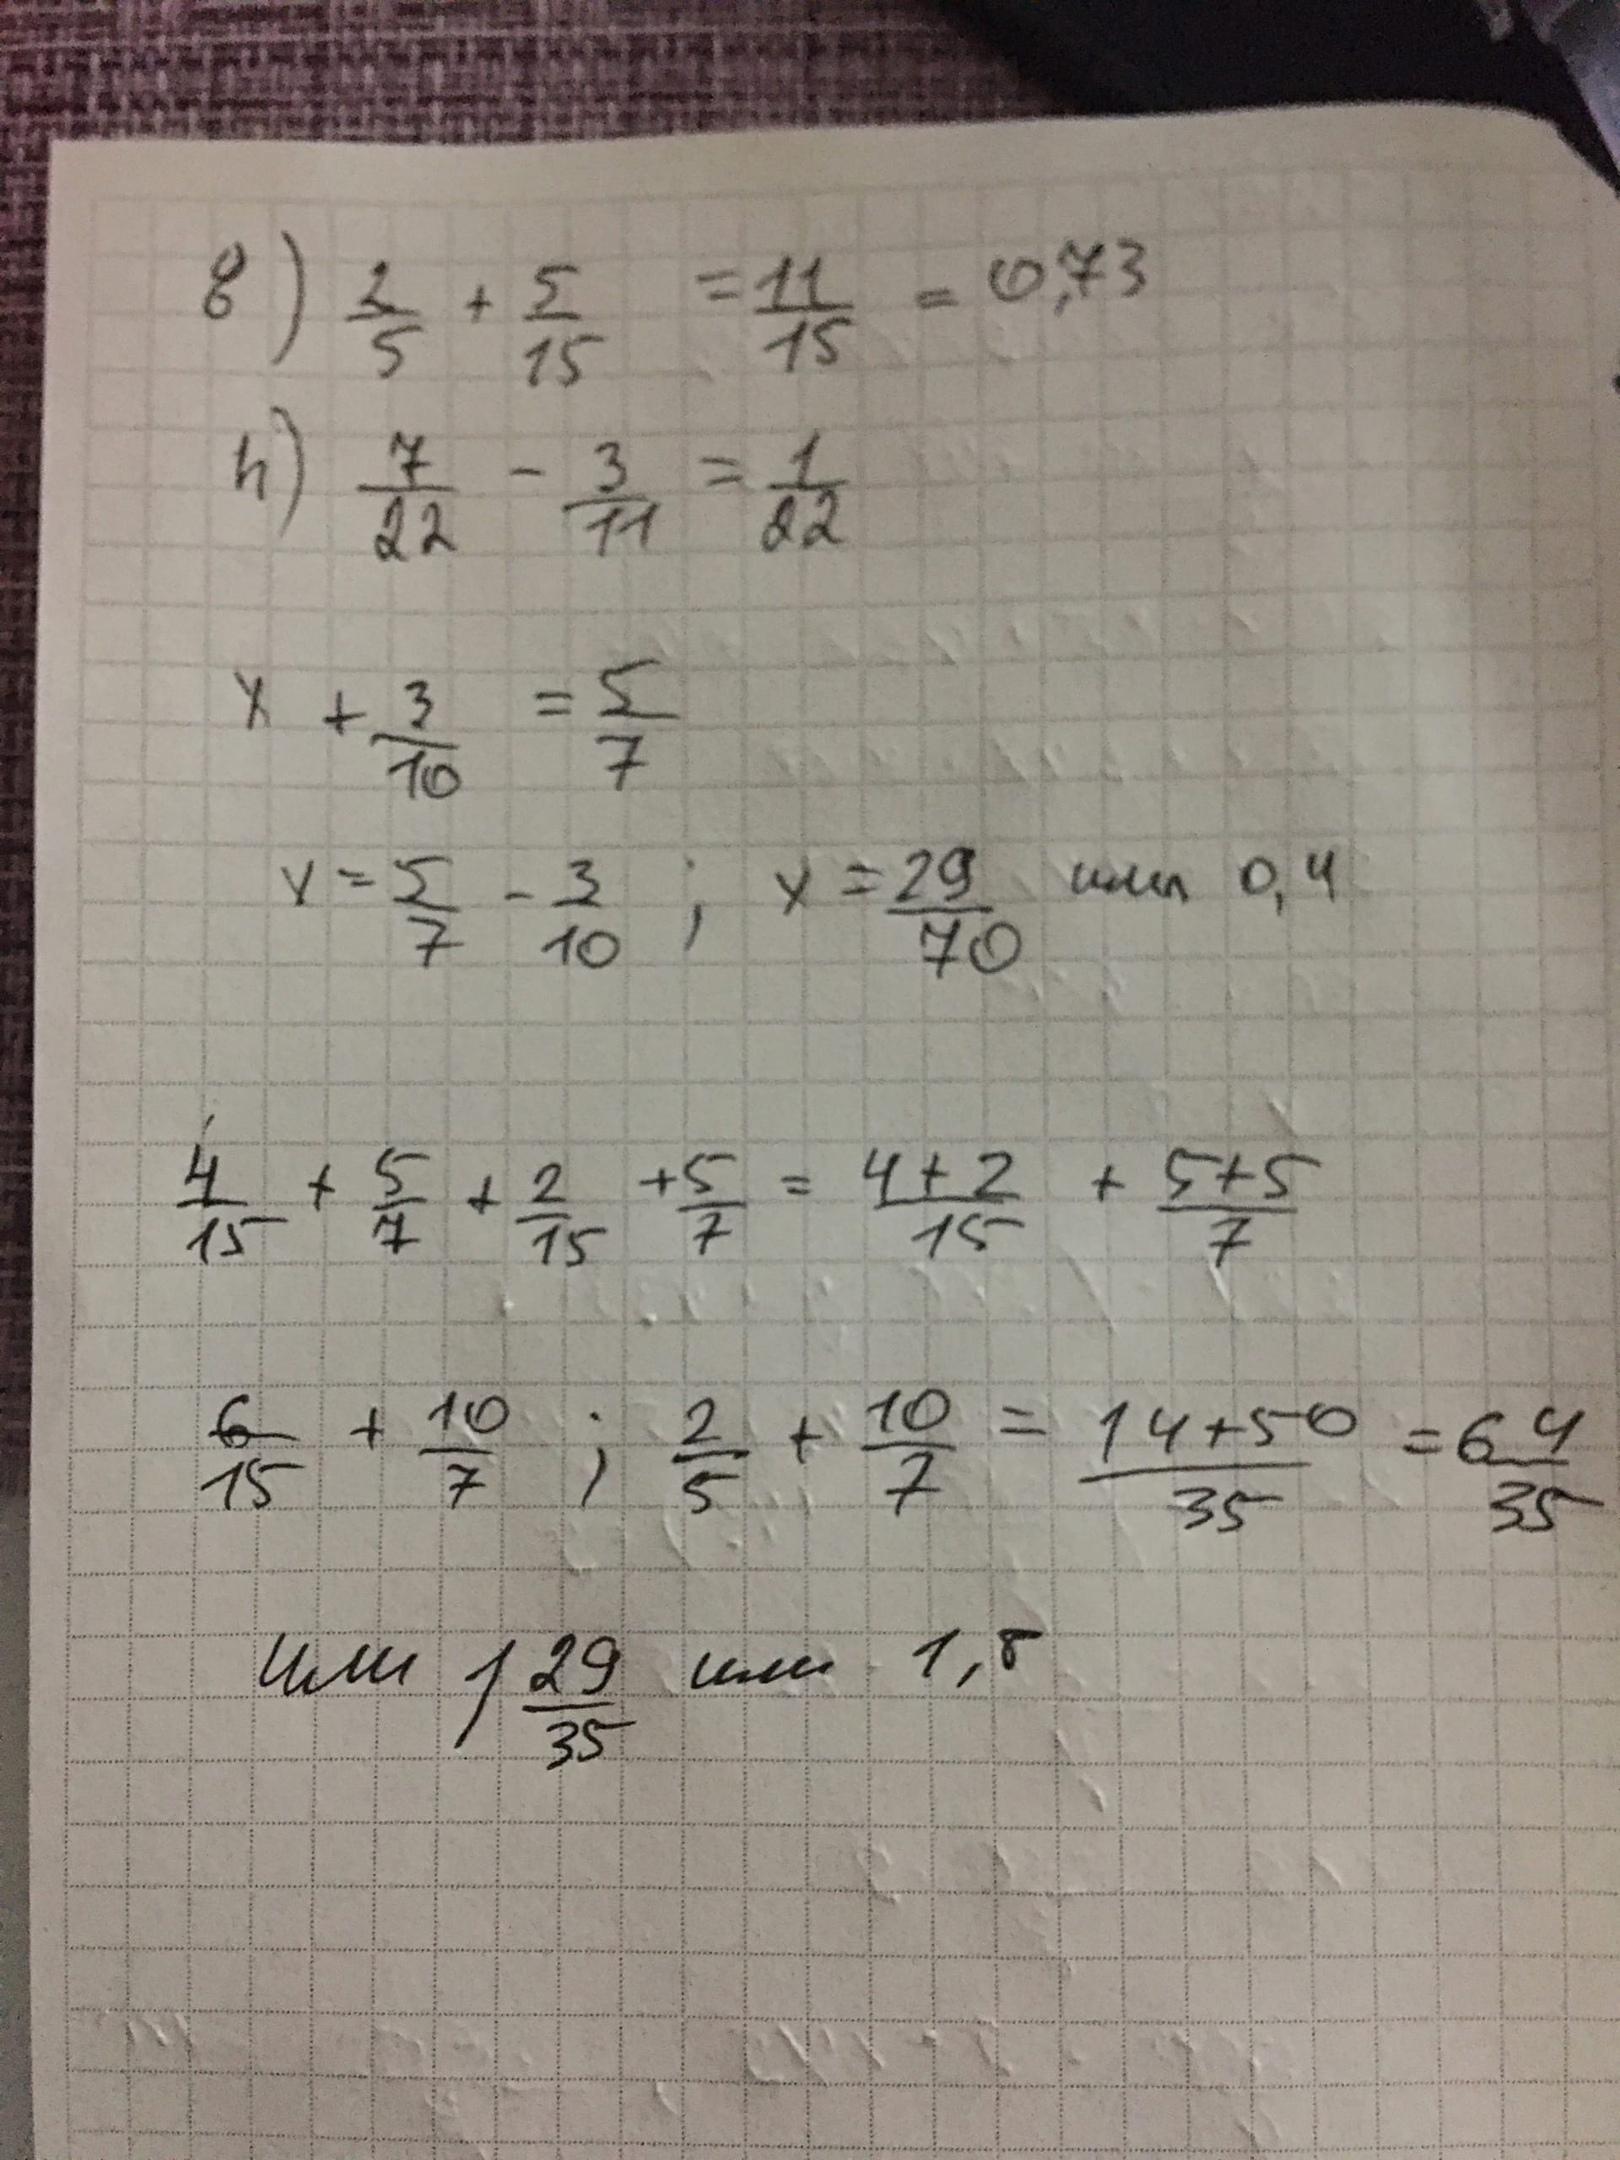 g) 2/5 + 5/15 = 11/15 = 0,73
h) 7/22 - 3/11 = 1/22
x + 3/10 = 5/7
x = 5/7 - 3/10 ; x = 29/70 или 0,4
4/15 + 5/7 + 2/15 + 5/7 = 4+2/15 + 5+5/7
6/15 + 10/7 ; 2/5 + 10/7 = 14+50/35 = 64/35
или 1 29/35 или 1,8